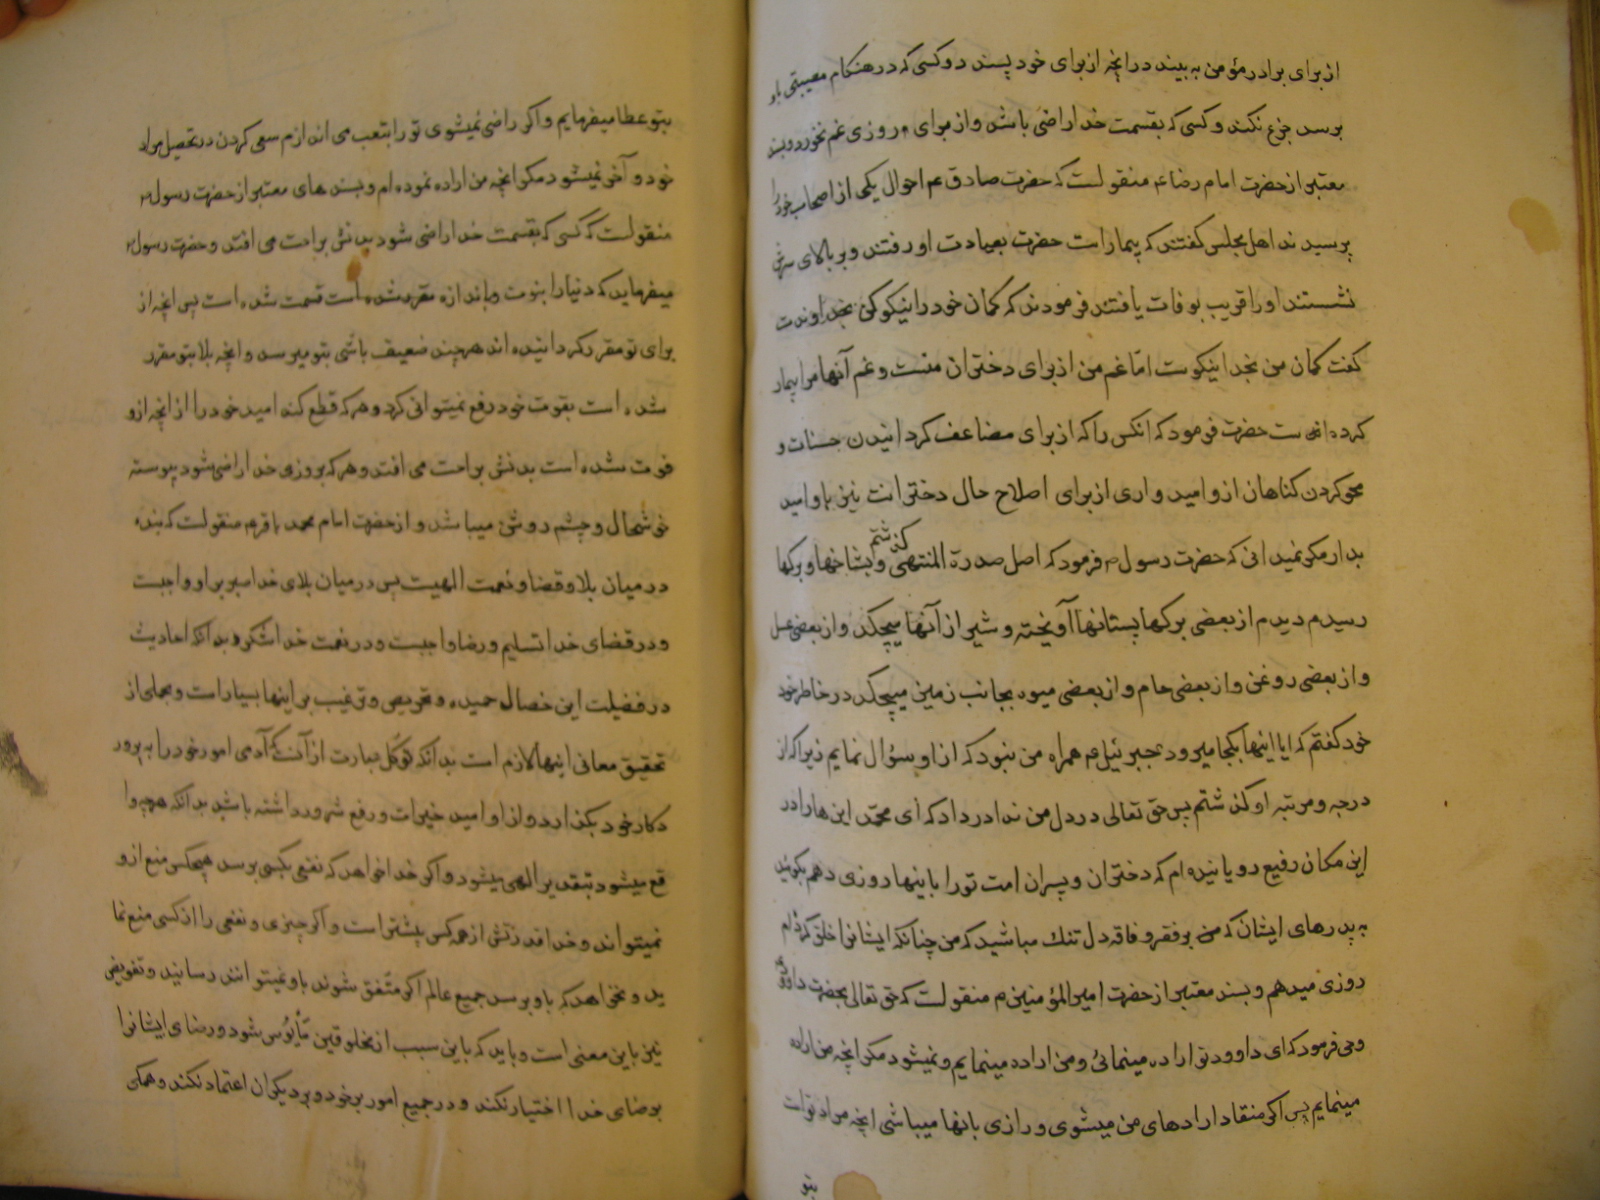 از برای برادر مؤمن به بیند در انچه از برای خود پسندد و کسی که در هنکام مصیبتی باو
برسد جزع نکند و کسی که بقسمت خدا راضی باشد و از برای روزی غم نخورد و بسند
معتبر از حضرت امام رضا ع منقولست که حضرت صادق ع احوال یکی از اصحاب خود را
پرسیدند اهل مجلس کفتند که بیمار است حضرت بعیادت او رفتند و بر بالای سرش
نشستند او را قریب بوفات یافتند فرمودند که کمان خود را نیکو کن بخداوندت
کفت کمان من بخدا نیکوست امّا غم من از برای دختران منست و غم آنها مرا بیمار
کرده است حضرت فرمود که انکس را که از برای مضاعف کردانیدن حسنات و
محو کردن کناهان ازو امید واری از برای اصلاح حال دخترانت نیز باو امید
بدار مکر نمیدانی که حضرت رسول ص فرمود که اصل صدرة المنتهی کذشتم و بشاخها و برکها
رسیدم دیدم از بعضی برکها پستانها آویخته و شیر از آنها میچکد و از بعضی عسل
و از بعضی روغن و از بعضی جام و از بعضی میوه بجانب زمین میچکد در خاطر خود
خود کفتم که ایا اینها بکجا میرود جبرئیل ع همراه من نبود که از او سؤال نمایم زیرا که از
درجه و مرتبه او کذشتم پس حق تعالی در دل من ندا در داد که ای محمّد این ها را در
این مکان رفیع رویانیده ام که دختران و پسران امت تو را باینها روزی دهم بکویند
به پدرهای ایشان که من بر فقر و فاقه دل تنك مباشید که من چنانکه ایشانرا خلق کرده ام
روزی میدهم و بسند معتبر از حضرت امیر المؤمنین م منقولست که حق تعالی بحضرت داوود
وحی فرمود که ای داوود تو اراده مینمائی و من اراده مینمایم و نمیشود مکر انچه من اراده
مینمایم پس اکر منقاد ارادهای من میشوی و رازی بانها میباشی انچه مراد تو است
بتو
بتو عطا میفرمایم و اکر راضی نمیشوی تو را بتعب می اندازم سعی کردن در تحصیل مراد
خود و آخر نمیشود مکر انچه من اراده نموده ام و بسند های معتبر از حضرت رسول ص
منقولست که کسی که بقسمت خدا راضی شود بدنش براحت می افتد و حضرت رسول ص
میفرماید که دنیا را بنوبت و باندازه مقرر شده است قسمت شده است پس انچه از
برای تو مقرر کردانیده اند هرچند ضعیف باشی بتو میرسد و انچه بلا بتو مقرر
شده است بقوت خود رفع نمیتوانی کرد و هر که قطع کند امید خود را از انچه ازو
فوت شده است بدنش براحت می افتد و هر که بروزی خدا راضی شود پیوسته
خوشحال و چشم روشن میباشد و از حضرت امام محمد باقر ع منقولست که بنده
در میان بلا و قضا و نعمت الهیت پس در میان بلای خدا صبر بر او واجبست
و در قضای خدا تسلیم و رضا واجبست و در نعمت خدا شکر و بدانکه احادیث
در فضیلت این خصال حمیده و تحریص و ترغیب بر اینها بسیار است و مجملی از
تحقیق معانی اینها لازم است بدانکه توکل عبارت از آنست که آدمی امور خود را به پرور
دکار خود بکذارد و از او امید خیرات و رفع شرور داشته باشد بداند که هرچه وا
قع میشود بتقدیر الهی میشود و اکر خدا خواهد که نفعی بکسی برسد هیچکس منع ازو
نمیتواند و خدا قدرتش از همه کس بیشتر است و اکر چیزی و نفعی را از کسی منع نما
ید و نخواهد که باو برسد جمیع عالم اکر متّفق شوند باو نمیتوانند رسانید و تفویض
نیز باین معنی است و باید که باین سبب از مخلوقین مأیوس شود و رضای ایشانرا
بر رضای خدا اختیار نکند و در جمیع امور بر خود و بر دیکران اعتماد نکند و همکی